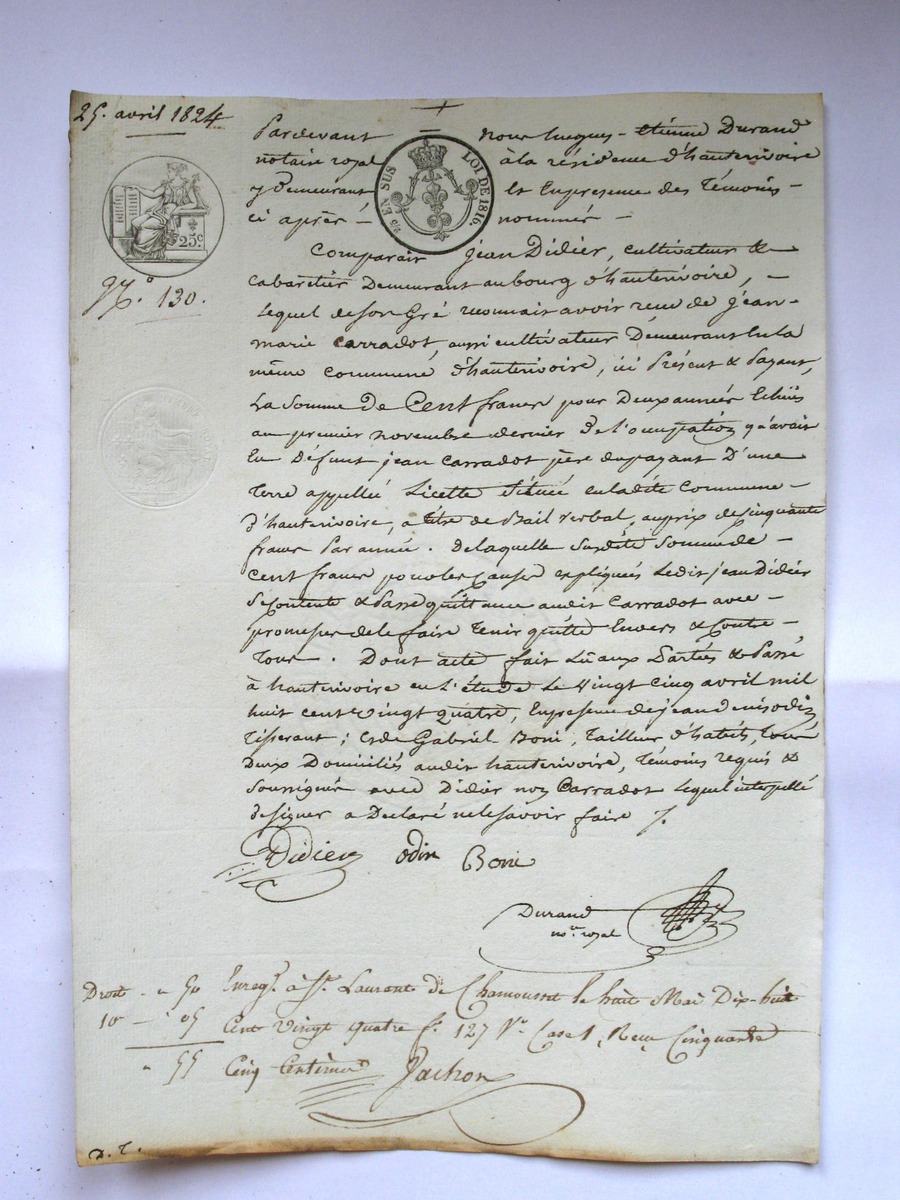 25. avril 1824
+
Pardevant = nous Hugues-étienne Durand
notaire royal à la résidence d'hauterivoire
y Demeurant Et En présence des Témoins-
ci après- nommés -
LOI DE 1816.
EN SUS
25c
N.º 130.
Comparait jean Didier, cultivateur &
cabaretier Demeurant au bourg d'hauterivoire, -
Lequel de son Gré reconnait avoir reçu de jean-
marie Carradot, aussi cultivateur Demeurant En la
même Commune d'hauterivoire, ici Présent & Payant,
La Somme De Cent francs pour Deux années Echües
au premier novembre dernier De l'occupation qu'avait
Eu Défunt jean Carradot père du payant D'une
Terre appellée Licette Située en ladite Commune-
d'hauterivoire, a titre de Bail verbal, au prix de cinquante
francs Par année. De laquelle Susdite Somme de -
Cent francs pour les Causes expliquées Ledit jean Didier
Se Contente & Passe quittance audit Carradot avec -
promesse de le faire Tenir quitte Envers & Contre-
Tous. Dont acte fait Lû aux Parties & Passé
à hauterivoire en L'étude Le Vingt Cinq avril mil
huit cent vingt quatre, En présence de jean denis odin
Tisserant; Et de Gabriel Boni, Tailleur d'habits, tous
Deux Domiciliés audit hauterivoire, Témoins requis &
Soussignés avec Didier non Carradot Lequel interpellé
de signer a Déclaré ne le savoir faire /.
Didier odin Boni
Durand
nore. royal
Droit - " 50 Enregé. à St. Laurent de Chamousset le huit Mai Dix-huit
10 - " 05 Cent Vingt quatre fo. 127 Vo. Case 1, Reçu Cinquante
" 55 Cinq Centimes Jachon
D. T.